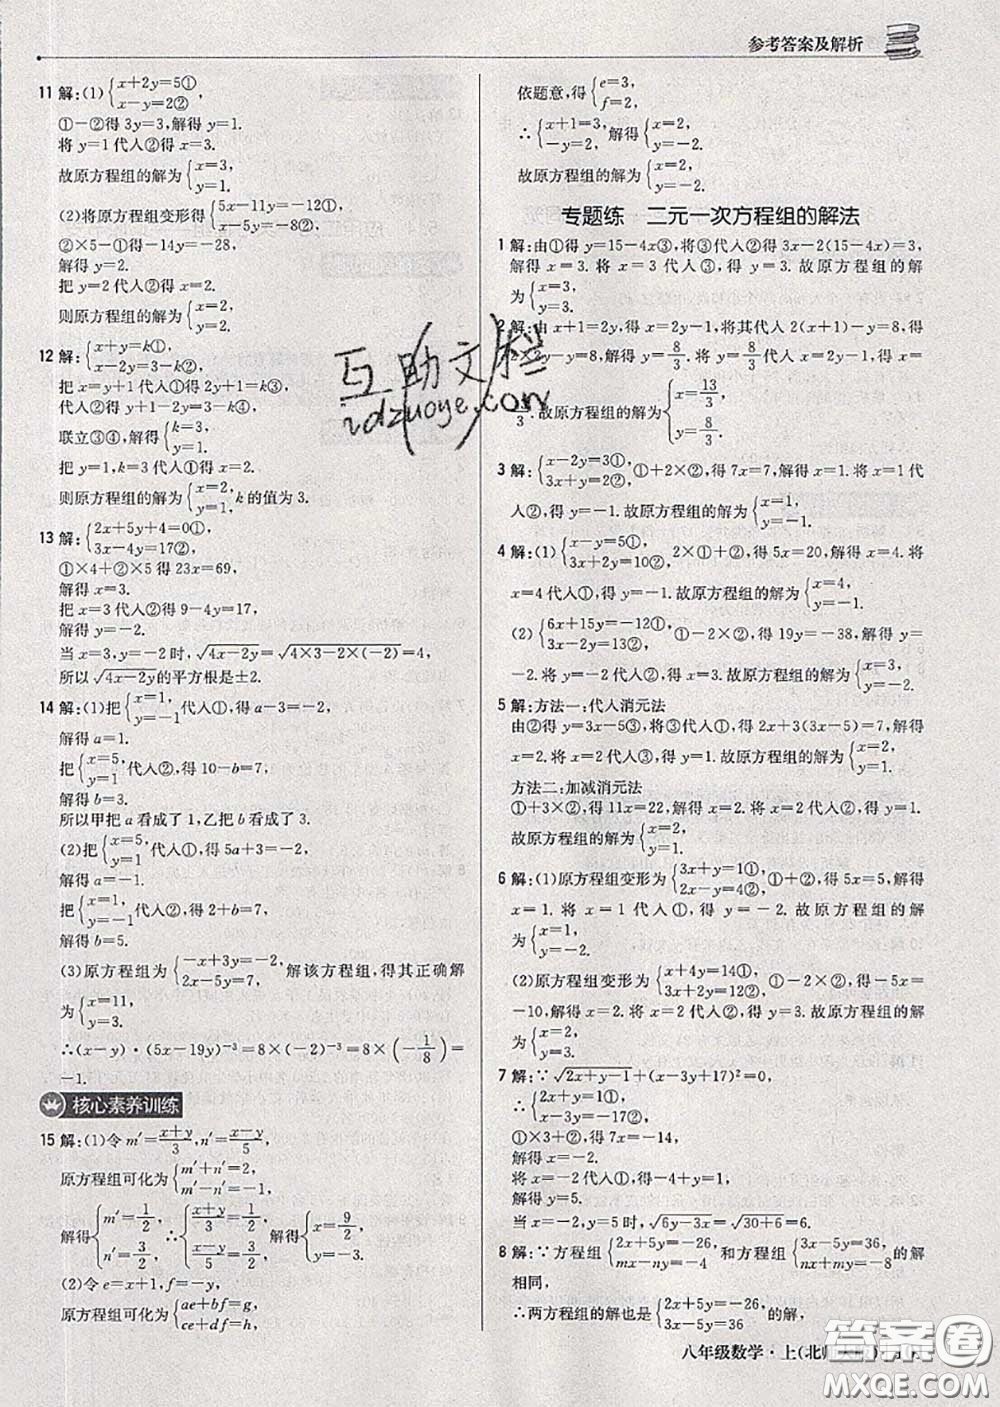 参考答案及解析
11 解:(1){x+2y=5①, x-y=2②,
①-②得 3y=3,解得 y=1.
将 y=1 代人②得 x=3.
故原方程组的解为{x=3, y=1.
(2)将原方程组变形得{5x-11y=-12①, x-5y=-8②,
②×5-①得-14y=-28,
解得 y=2.
把 y=2 代人②得 x=2.
则原方程组的解为{x=2, y=2.
12 解:{x+y=k①, 2x+3y=3-k②,
把 x=y+1 代人①得 2y+1=k③,
代人②得 y+1-2y=3-k④,
联立③④,解得{k=3, y=1.
把 y=1,k=3 代人①得 x=2.
则原方程组的解为{x=2, y=1, k 的值为 3.
13 解:{2x+5y+4=0①, 3x-4y=17②,
①×4+②×5 得 23x=69,
解得 x=3.
把 x=3 代人②得 9-4y=17,
解得 y=-2.
当 x=3,y=-2 时,√(4x-2y)=√(4×3-2×(-2))=4,
所以√(4x-2y)的平方根是±2.
14 解:(1)把{x=1, y=-1代人①,得 a-3=-2,
解得 a=1.
把{x=5, y=1代人②,得 10-b=7,
解得 b=3.
所以甲把 a 看成了 1,乙把 b 看成了 3.
(2)把{x=5, y=1代人①,得 5a+3=-2,
解得 a=-1.
把{x=1, y=-1代人②,得 2+b=7,
解得 b=5.
(3)原方程组为{-x+3y=-2, 2x-5y=7, 解该方程组,得其正确解
为{x=11, y=3.
∴(x-y)·(5x-19y)⁻³=8×(-2)⁻³=8×(-1/8)=
-1.
核心素养训练
15 解:(1)令 m′=(x+y)/3,n′=(x-y)/5,
原方程组可化为{m′+n′=2, m′-n′=-1,
解得{m′=1/2, n′=3/2. ∴{(x+y)/3=1/2, (x-y)/5=3/2. 解得{x=9/2, y=-3.
(2)令 e=x+1,f=-y,
原方程组可化为{ae+bf=g, ce+df=h,
依题意,得{e=3, f=2,
∴{x+1=3, -y=2, 解得{x=2, y=-2.
故原方程组的解为{x=2, y=-2.
专题练 二元一次方程组的解法
1 解:由①得 y=15-4x③,将③代人②得 3x-2(15-4x)=3,
解得 x=3. 将 x=3 代人③,得 y=3. 故原方程组的解
为{x=3, y=3.
2 解:由 x+1=2y,得 x=2y-1,将其代人 2(x+1)-y=8,得
2×2y-y=8,解得 y=8/3. 将 y=8/3 代人 x=2y-1,得 x=
/3. 故原方程组的解为{x=13/3, y=8/3.
3 解:{x-2y=3①, 3x+y=2②, ①+2×②,得 7x=7,解得 x=1. 将 x=1 代
人②,得 y=-1. 故原方程组的解为{x=1, y=-1.
4 解:(1){x-y=5①, 3x+2y=10②, 2×①+②,得 5x=20,解得 x=4. 将
x=4 代人①,得 y=-1. 故原方程组的解为{x=4, y=-1.
(2){6x+15y=-12①, 6x-4y=26②, ①-②,得 19y=-38,解得 y=
-2. 将 y=-2 代人②,得 x=3. 故原方程组的解为{x=3, y=-2.
5 解:方法一:代人消元法
由②得 y=3x-5③,将③代人①,得 2x+3(3x-5)=7,解得
x=2. 将 x=2 代人③,得 y=1. 故原方程组的解为{x=2, y=1.
方法二:加减消元法
①+3×②,得 11x=22,解得 x=2. 将 x=2 代人②,得 y=1.
故原方程组的解为{x=2, y=1.
6 解:(1)原方程组变形为{3x+y=1①, 2x-y=4②, ①+②,得 5x=5,解得
x=1. 将 x=1 代人①,得 y=-2. 故原方程组的解
为{x=1, y=-2.
(2)原方程组变形为{x+4y=14①, 3x+4y=12②,
-10,解得 x=2. 将 x=2 代人②,得 y=3. 故原方程组的解
为{x=2, y=3.
7 解:∵√(2x+y-1)+(x-3y+17)²=0,
∴{2x+y=1①, x-3y=-17②,
①×3+②,得 7x=-14,
解得 x=-2.
将 x=-2 代人①,得-4+y=1,
解得 y=5.
当 x=-2,y=5 时,√(6y-3x)=√(30+6)=6.
8 解:∵方程组{2x+5y=-26, mx-ny=-4和方程组{3x-5y=36, nx+my=-8的解
相同,
∴两方程组的解也是{2x+5y=-26, 3x-5y=36的解,
八年级数学·上(北师
互助文档
idzuoye.com
答案圈
MXQE.COM